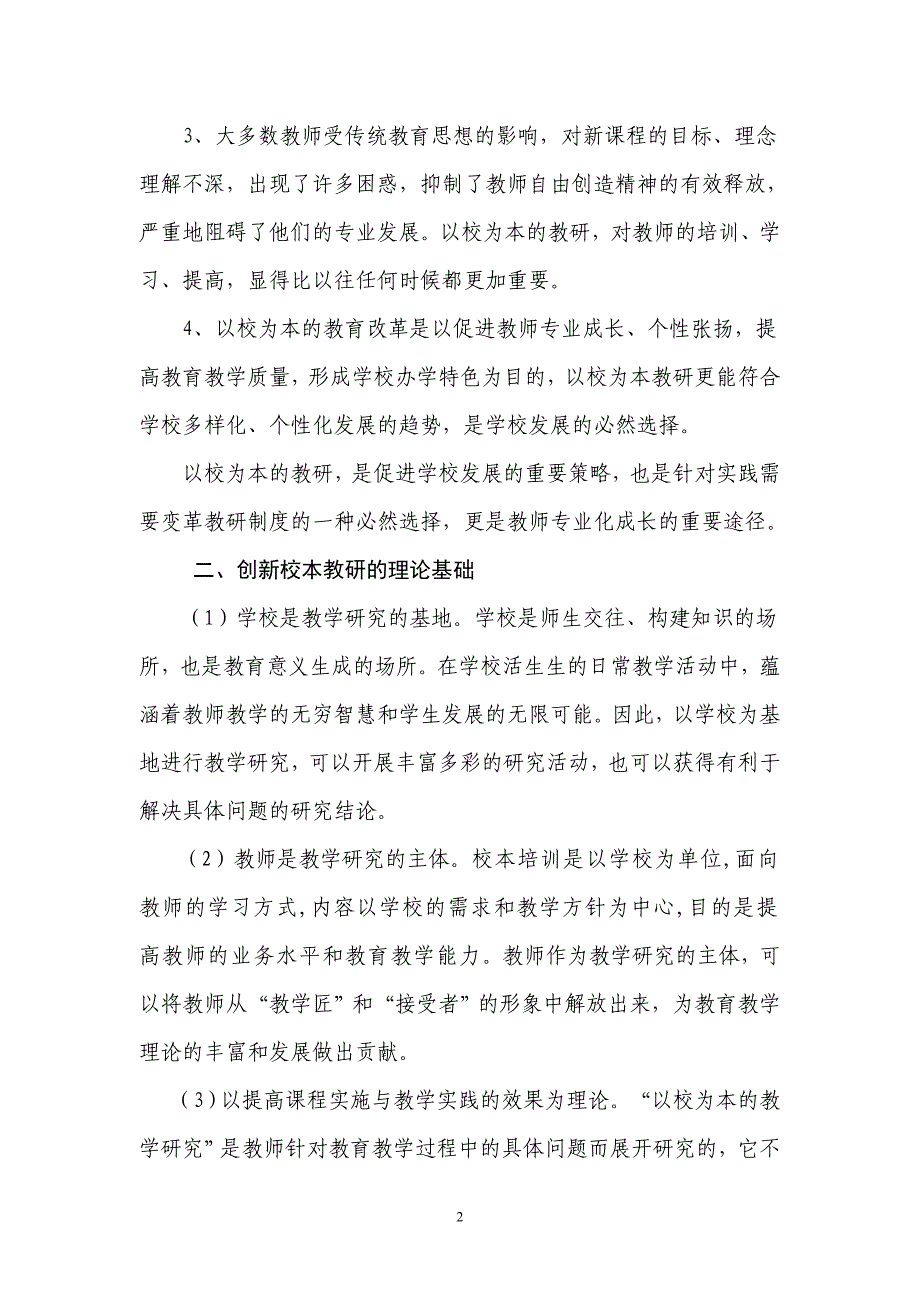 3、大多数教师受传统教育思想的影响，对新课程的目标、理念
理解不深，出现了许多困惑，抑制了教师自由创造精神的有效释放，
严重地阻碍了他们的专业发展。以校为本的教研，对教师的培训、学
习、提高，显得比以往任何时候都更加重要。
4、以校为本的教育改革是以促进教师专业成长、个性张扬，提
高教育教学质量，形成学校办学特色为目的，以校为本教研更能符合
学校多样化、个性化发展的趋势，是学校发展的必然选择。
以校为本的教研，是促进学校发展的重要策略，也是针对实践需
要变革教研制度的一种必然选择，更是教师专业化成长的重要途径。
二、创新校本教研的理论基础
（1）学校是教学研究的基地。学校是师生交往、构建知识的场
所，也是教育意义生成的场所。在学校活生生的日常教学活动中，蕴
涵着教师教学的无穷智慧和学生发展的无限可能。因此，以学校为基
地进行教学研究，可以开展丰富多彩的研究活动，也可以获得有利于
解决具体问题的研究结论。
（2）教师是教学研究的主体。校本培训是以学校为单位,面向
教师的学习方式,内容以学校的需求和教学方针为中心,目的是提
高教师的业务水平和教育教学能力。教师作为教学研究的主体，可
以将教师从“教学匠”和“接受者”的形象中解放出来，为教育教学
理论的丰富和发展做出贡献。
（3)以提高课程实施与教学实践的效果为理论。“以校为本的教
学研究”是教师针对教育教学过程中的具体问题而展开研究的，它不
2